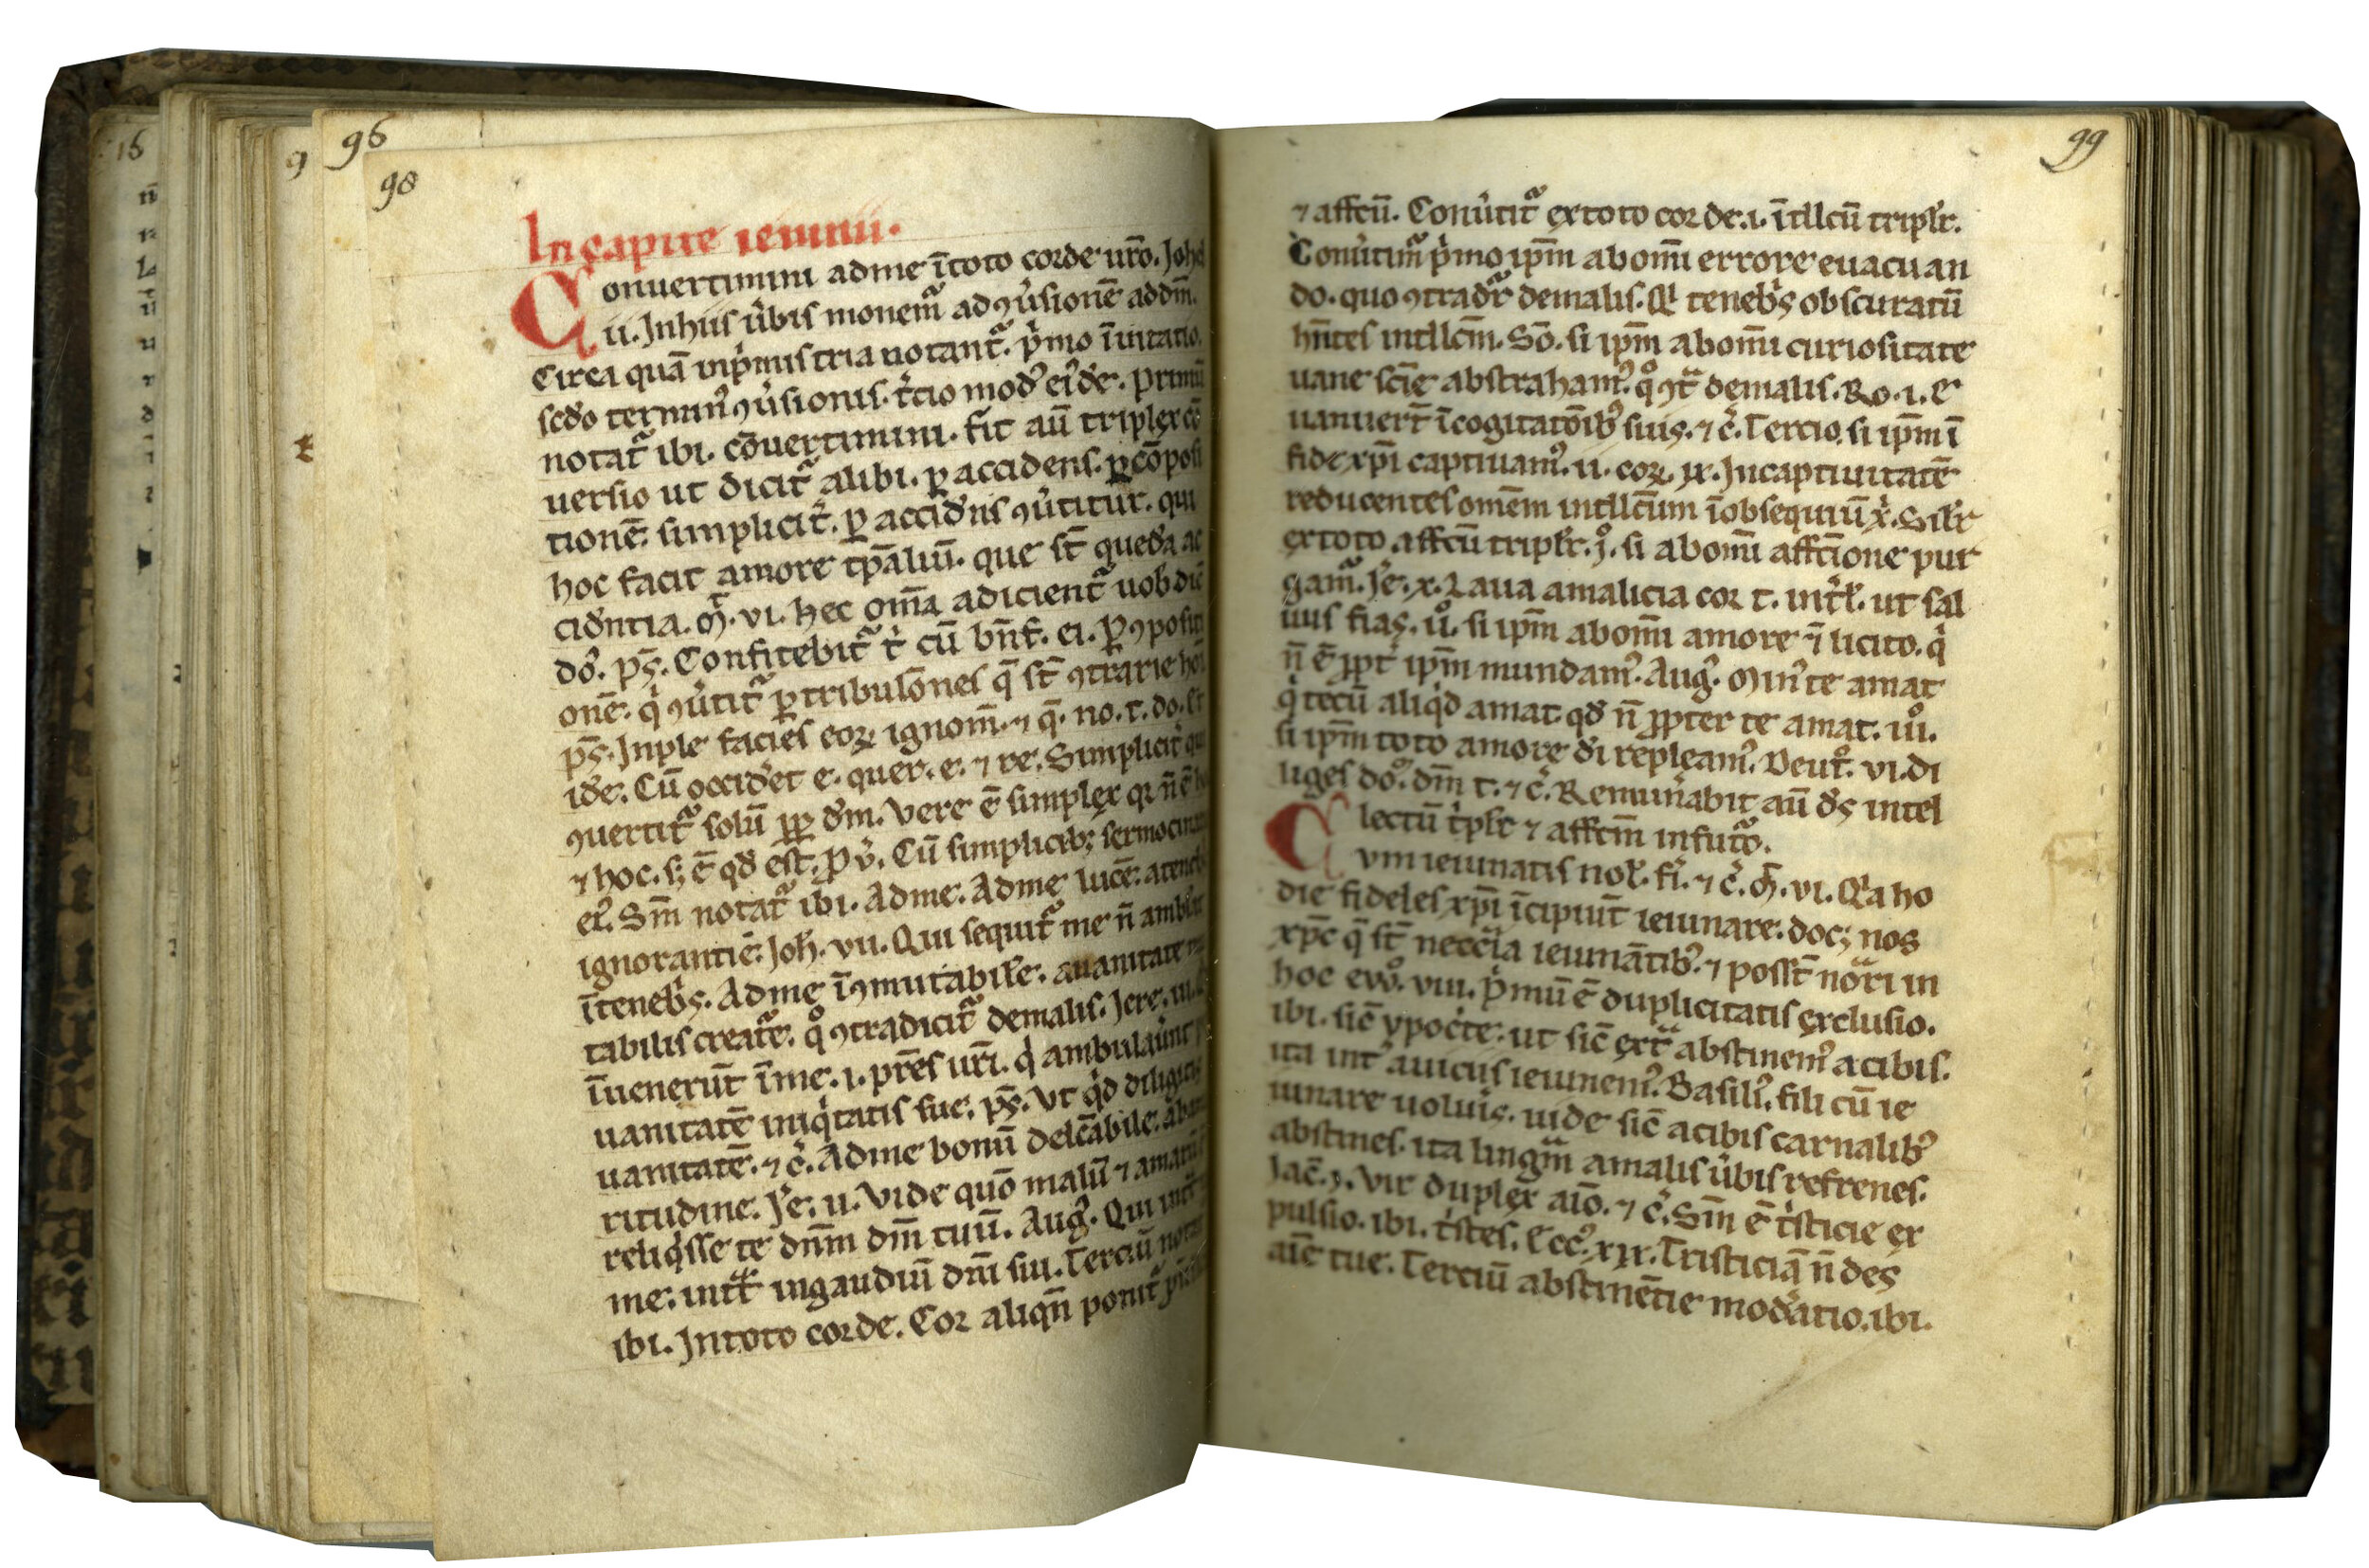 16
9
96
98
In capite ieiunii.
Conuertimini ad me ī toto corde ur̄o. Johel
ii. In hiis ỏbis monem᷑ ad ꝯủsionē ad dm̄.
Circa quā inpͥmis tria notant᷑. pͥmo īuitatio.
scd̓o terminꝰ ꝯủsionis. t̓cio modꝰ eiꝰd̓e. primū
notat᷑ ibi. cōuertimini. fit aū triplex cō
uersio ut dicit᷑ alibi. ꝑ accidens. ꝑ cōposi
tionē. simplicit̓. ꝑ accid̓ns ꝯủtitur. qui
hoc facit amore tp̄aliū. que st̄ queda ac
cid̓ntia. M̄. vi. hec om̄a adicient᷑ uob dic̄
do. ps̄. Confitebit᷑ t̓ cū bn̄f. ei. ꝑ ꝯpositi
onē. qͥ ꝯủtit᷑ ꝑ tribulōnes q̄ st̄ ꝯtrarie
ps̄. Inple facies eoꝝ ignom̄. ⁊ q̄. no. t. do.
id̓e. Cū occid̓et e. quer. e. ⁊ re. Simplicit̓
ꝯuertit᷑ solū ꝓꝑ d̓m. Vere ē simplex qꝛ n̄ ē
⁊ hoc. s; ē qd̓ est. ꝓủ. Cū simplicib; sermocin
eiꝰ. Sm̄ notat᷑ ibi. Ad me. Ad me lucē. a teneb
ignorantie. Joh̄. vii. Qui sequit᷑ me n̄ ambl̓at
ī teneb̓s. Ad me īꝯmutabil̓e. a uanitate
tabilis creat᷑e. qͦ ꝯtradicit᷑ de malis. Jere. ii.
īuenerūt ī me. i. pr̄es ur̄i. qͥ ambulaủnt
uanitatē iniqͥtatis sue. ps̄. Vt qͥd diligitis
uanitatē. ⁊ c̓. Ad me bonū delc̄abile. ab
ritudine. Je̓. ii. Vide quō malū ⁊ amarū
reliqͥsse te dn̄m dm̄ tuū. Augꝰ. Qui
me. int᷑t in gaudiū dn̄i sui. Terciū notat
ibi. In toto corde. Cor aliqn̄ ponit᷑
99
⁊ affcū. Conủtit᷑ ex toto corde. i. ītllcū tripl̓r.
Conủtim᷑ pͥmo ipm̄ ab om̄i errore euacuan
do. quo ꝯtradr̓ de malis. Qͥ teneb̓s obscuratū
hn̄tes intllcm̄. So. si ipm̄ ab om̄i curiositate
uane scīe abstrahamꝰ. qͦ ꝯt᷑ de malis. Ro. i. E
uanuert̄ ī cogitatōibꝰ suis. ⁊ c̓. Tercio si ipm̄ ī
fide xp̄i captiuamꝰ. ii. coꝝ. x. In captiuitatē
reducentes omēm intllc̄um ī obsequiū x̓. Sil̓r
ex toto affcū tripl̓r. jͦ. si ab om̄i affcīone pur
gam᷑. Je̓. x. Laua a malicia cor t. int̓l̓. ut sal
uus fias. iiͦ. si ipm̄ ab om̄i amore īlicito. qͥ
n̄ ē ꝓpt̓ ipm̄ mundamꝰ. Augꝰ. Minꝰ te amat
qͥ tecū aliqͥd amat qd̓ n̄ ꝓpter te amat. iiiͦ.
si ipm̄ toto amore d̓i repleamꝰ. Deut̓. vi. di
liges do. dm̄ t. ⁊ c̓. Remun̓abit aū d̓s intel
lectū t̓pl̓r ⁊ affcm̄ in futo᷑.
Cvm ieiunatis nol̓. fi̓. ⁊ c̓. M̄. vi. Qͥa ho
die fideles xp̄i īcipiūt ieiunare. doc; nos
xp̄c q̄ st̄ neccīa ieiunātibꝰ. ⁊ posst̄ no᷑ri in
hoc ewͦ. viii. pͥmū ē duplicitatis exclusio.
ibi. sic̄ ypoc̓te. ut sic̄ ext᷑ abstinemꝰ a cibis.
ita int᷑ a uiciis ieiunemꝰ. Basiliꝰ. fili cū ie
iunare uoluis. uide sic̄ a cibis carnalibꝰ
abstines. ita lingm᷑ a malis ủbis refrenes.
Jac̄. j. Vir duplex aīo. ⁊ c̓. Sm̄ ē t̓sticie ex
pulsio. ibi. t̓stes. Eccꝰ. xxx. Tristiciā n̄ des
aīe tue. Terciū abstinētie mod̓atio. ibi.